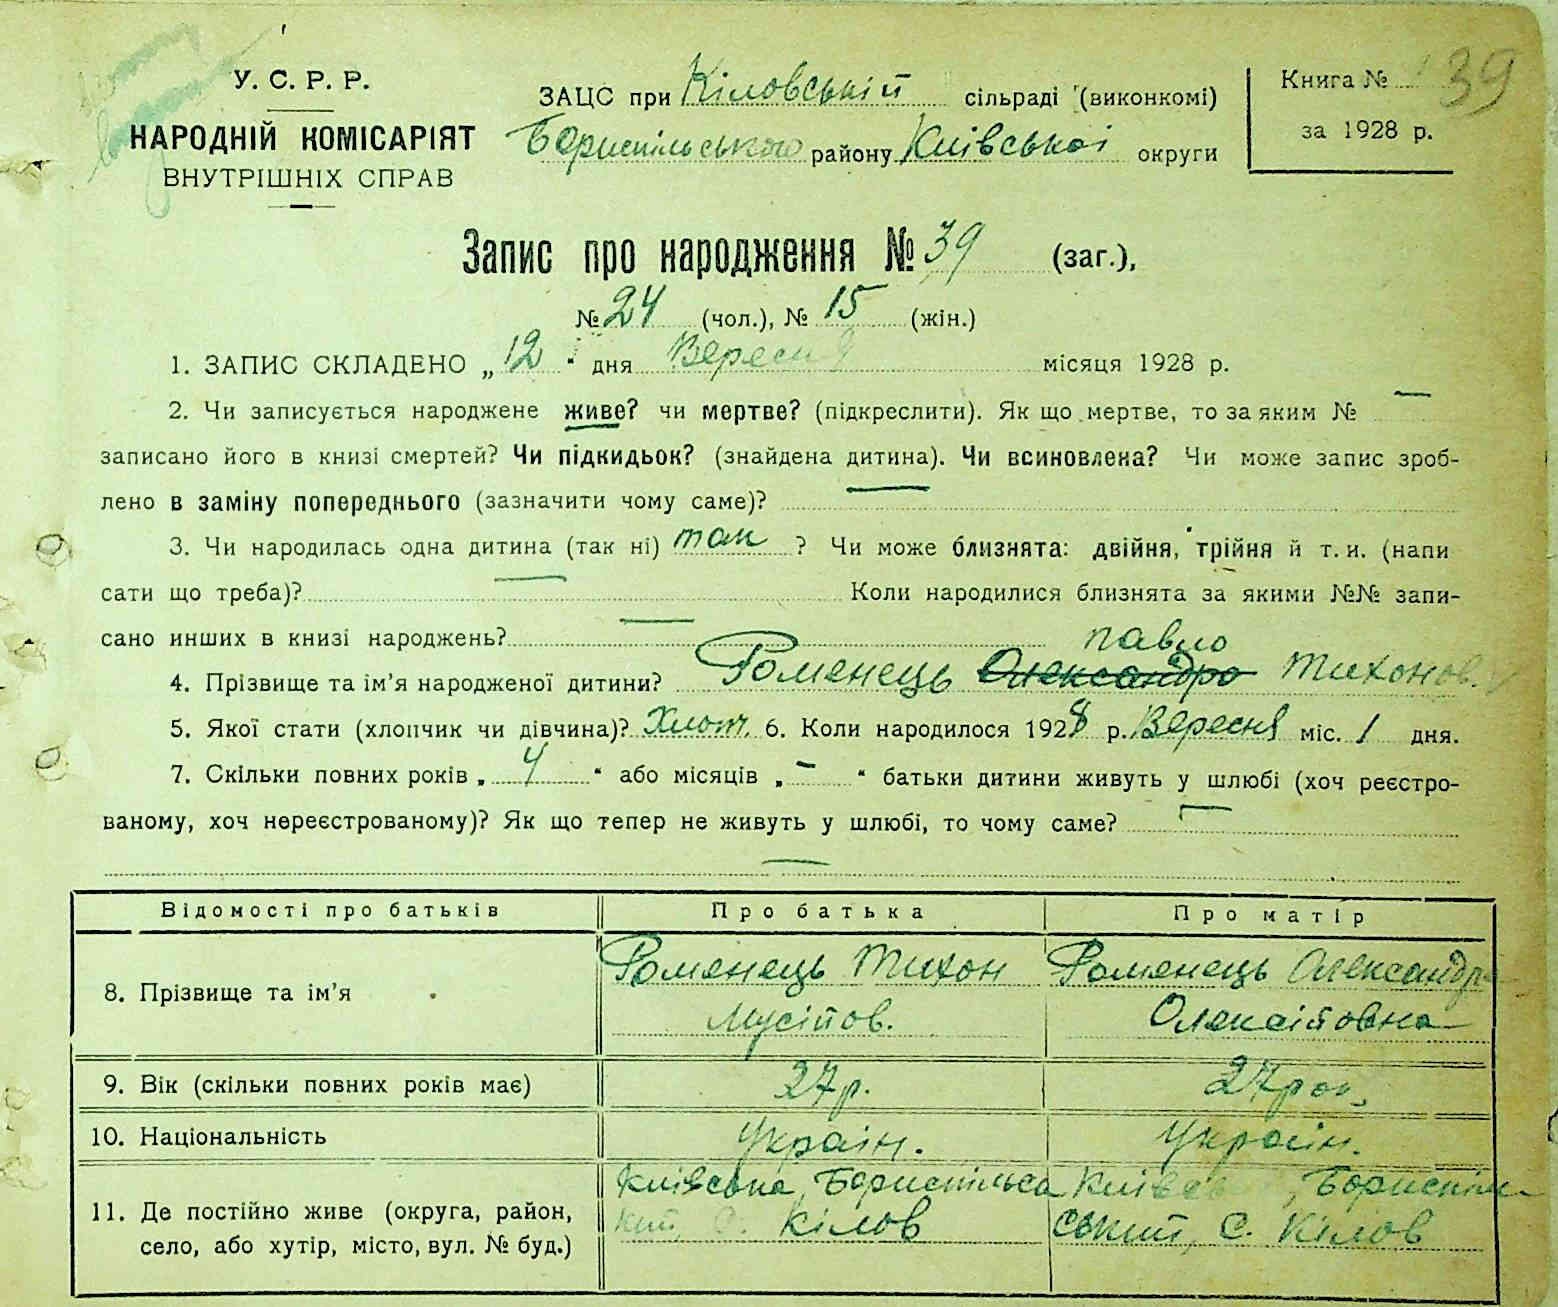 У. С. Р. Р.
НАРОДНІЙ КОМІСАРІЯТ
ВНУТРІШНІХ СПРАВ
ЗАЦС при Кіловській сільраді (виконкомі)
Бориспільського району Київської округи
Книга № 39
за 1928 р.
Запис про народження № 39 (заг.),
№ 24 (чол.), № 15 (жін.)
1. ЗАПИС СКЛАДЕНО „ 12 “ дня Вересня місяця 1928 р.
2. Чи записується народжене живе? чи мертве? (підкреслити). Як що мертве, то за яким № —
записано його в книзі смертей? Чи підкидьок? (знайдена дитина). Чи всиновлена? Чи може запис зроб-
лено в заміну попереднього (зазначити чому саме)? —
3. Чи народилась одна дитина (так ні) так ? Чи може близнята: двійня, трійня й т. и. (напи
сати що треба)? — Коли народилися близнята за якими №№ запи-
сано инших в книзі народжень? —
павло
4. Прізвище та ім’я народженої дитини? Роменець Олександро Тихонов.
5. Якої стати (хлопчик чи дівчина)? Хлоп. 6. Коли народилося 1928 р. Вересня міс. 1 дня.
7. Скільки повних років „ 4 “ або місяців „ — “ батьки дитини живуть у шлюбі (хоч реєстро-
ваному, хоч нереєстрованому)? Як що тепер не живуть у шлюбі, то чому саме? —
—
Відомості про батьків Про батька Про матір
8. Прізвище та ім’я Роменець Тихон Роменець Олександр
Мусійов. Олексіївна
9. Вік (скільки повних років має) 27 р. 27 рок.
10. Національність Україн. Україн.
11. Де постійно живе (округа, район, Київська, Бориспільсь Київсь , Бориспіль
село, або хутір, місто, вул. № буд.) кий, С. Кілов ський, С. Кілов